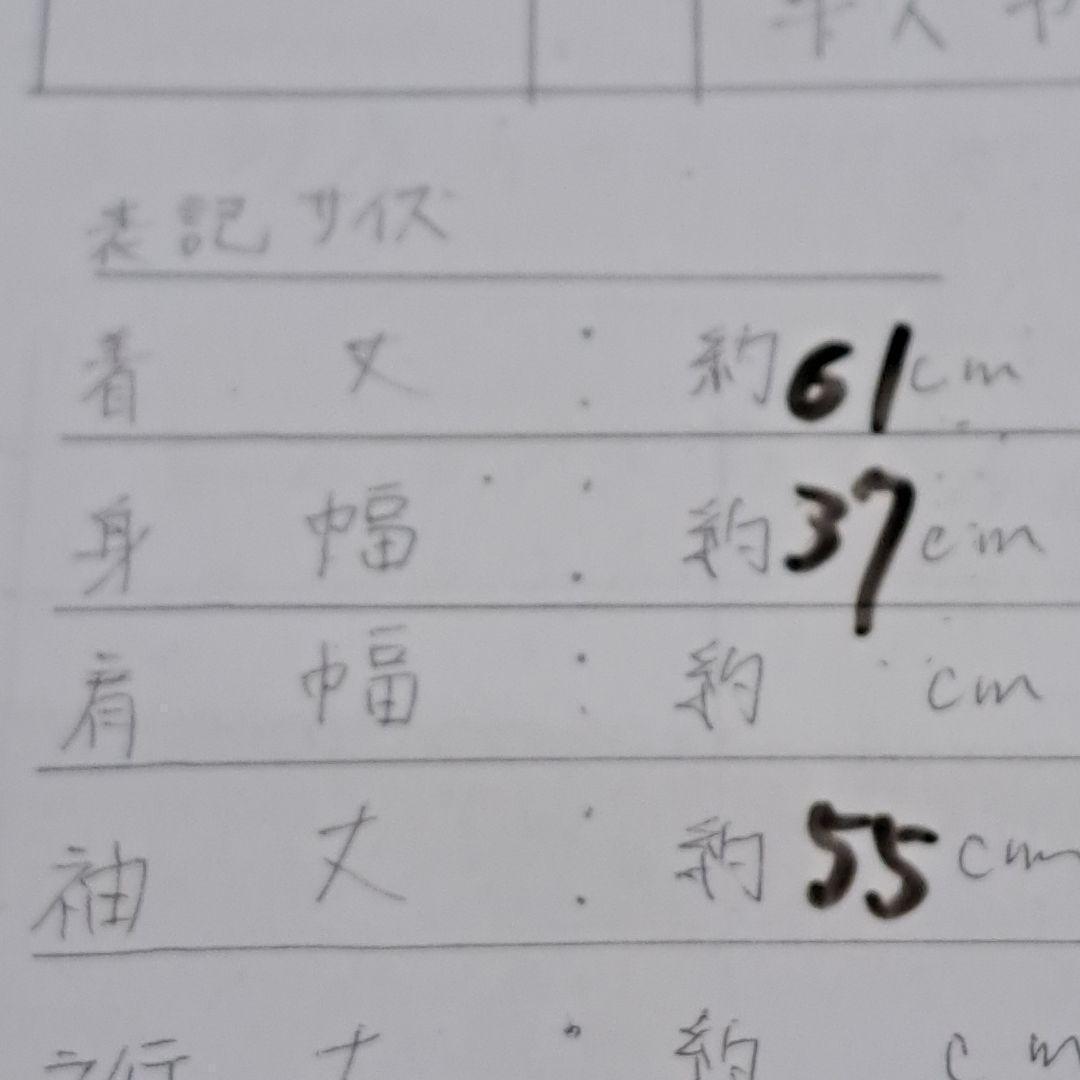 表記サイズ
着 丈 : 約61cm
身 幅 : 約37cm
肩 幅 : 約 cm
袖 丈 : 約55cm
裄 丈 : 約 cm